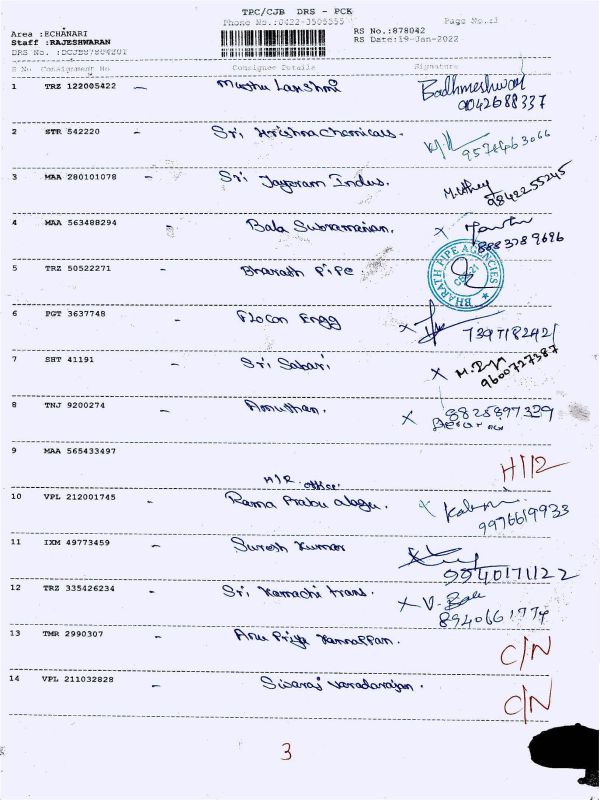 TPC/CJB DRS - PCK
Phone No.:0422-3505555 Page No.:3
Area :ECHANARI
RS No.:878042
Staff :RAJESHWARAN
RS Date:19-Jan-2022
S No Consignment No Consignee Details Signature
1 TRZ 122005422 - Muthu Lakshmi Badhmeshwar
9042688337
2 STR 542220 - Sri Krishna Chemicals.
9578463066
3 MAA 280101078 - Sri Jayaram Indus.
9842255245
4 MAA 563488294 - Bala Subramanian. X
8883789696
5 TRZ 50522271 - Bharath Pipe
BHARATH PIPE AGENCIES
6 PGT 3637748 - Flocon Engg X
7397182421
7 SHT 41191 - Sri Sabari X
9600727387
8 TNJ 9200274 - Amuthan. X 8825897329
9 MAA 565433497 H/12
H/R office.
10 VPL 212001745 - Rama Prabu Alagu. X
9976619933
11 IXM 49773459 - Suresh Kumar
9940171122
12 TRZ 335426234 - Sri Kamachi trans. X V. Bala
8940661774
13 TMR 2990307 - Anu Priya Kannappan. C/N
14 VPL 211032828 - Sivaraj Varadarajan. C/N
3